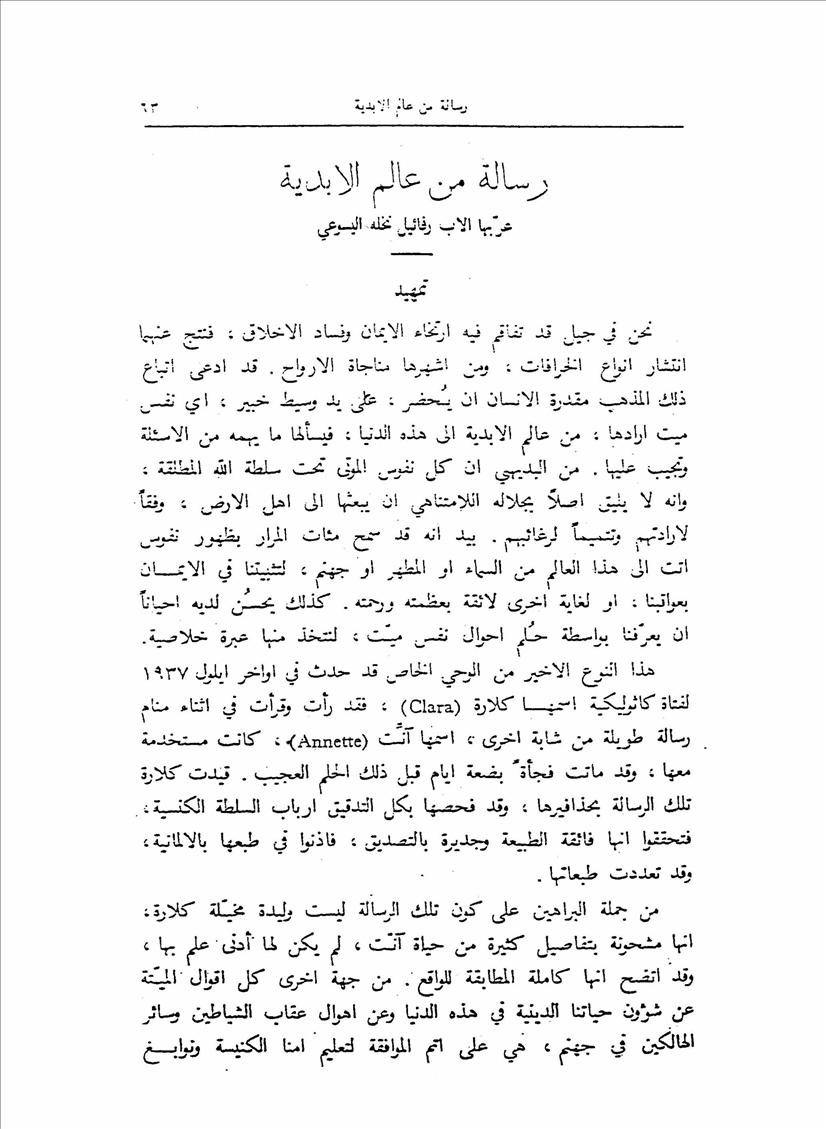 رسالة من عالم الابدية ٦٣
رسالة من عالم الابدية
عرّبها الاب رفائيل نخله اليسوعي
تمهيد
نحن في جيل قد تفاقم فيه ارتخاء الايمان وفساد الاخلاق ، فنتج عنهما
انتشار انواع الخرافات ، ومن اشهرها مناجاة الارواح . قد ادعى اتباع
ذلك المذهب مقدرة الانسان ان يُحضر ، على يد وسيط خبير ، اي نفس
ميت ارادها ، من عالم الابدية الى هذه الدنيا ، فيسألها ما يهمه من الاسئلة
وتجيب عليها . من البديهي ان كل نفوس الموتى تحت سلطة الله المطلقة ،
وانه لا يليق اصلاً بجلاله اللامتناهي ان يبعثها الى اهل الارض ، وفقاً
لارادتهم وتتميماً لرغائبهم . بيد انه قد سمح مئات المرار بظهور نفوس
اتت الى هذا العالم من السماء او المطهر او جهنم ، لتثبيتنا في الايمـــان
بعواقبنا ، او لغاية اخرى لائقة بعظمته ورحمته . كذلك يحسُن لديه احياناً
ان يعرّفنا بواسطة حُلم احوال نفس ميّت ، لنتخذ منها عبرة خلاصية .
هذا النوع الاخير من الوحي الخاص قد حدث في اواخر ايلول ١٩٣٧
لفتاة كاثوليكية اسمهـــا كلارة (Clara) ، فقد رأت وقرأت في اثناء منام
رسالة طويلة من شابة اخرى ، اسمها آنَّت (Annette) ، كانت مستخدمة
معها ، وقد ماتت فجأةً بضعة ايام قبل ذلك الحلم العجيب . قيدت كلارة
تلك الرسالة بحذافيرها ، وقد فحصها بكل التدقيق ارباب السلطة الكنسية ،
فتحققوا انها فائقة الطبيعة وجديرة بالتصديق ، فاذنوا في طبعها بالالمانية ،
وقد تعددت طبعاتها .
من جملة البراهين على كون تلك الرسالة ليست وليدة مخيّلة كلارة ،
انها مشحونة بتفاصيل كثيرة من حياة آنّت ، لم يكن لها أدنى علم بها ،
وقد اتضح انها كاملة المطابقة للواقع . من جهة اخرى كل اقوال الميّتة
عن شؤون حياتنا الدينية في هذه الدنيا وعن اهوال عقاب الشياطين وسائر
الهالكين في جهنم ، هي على اتم الموافقة لتعليم امنا الكنيسة ونوابـــغ